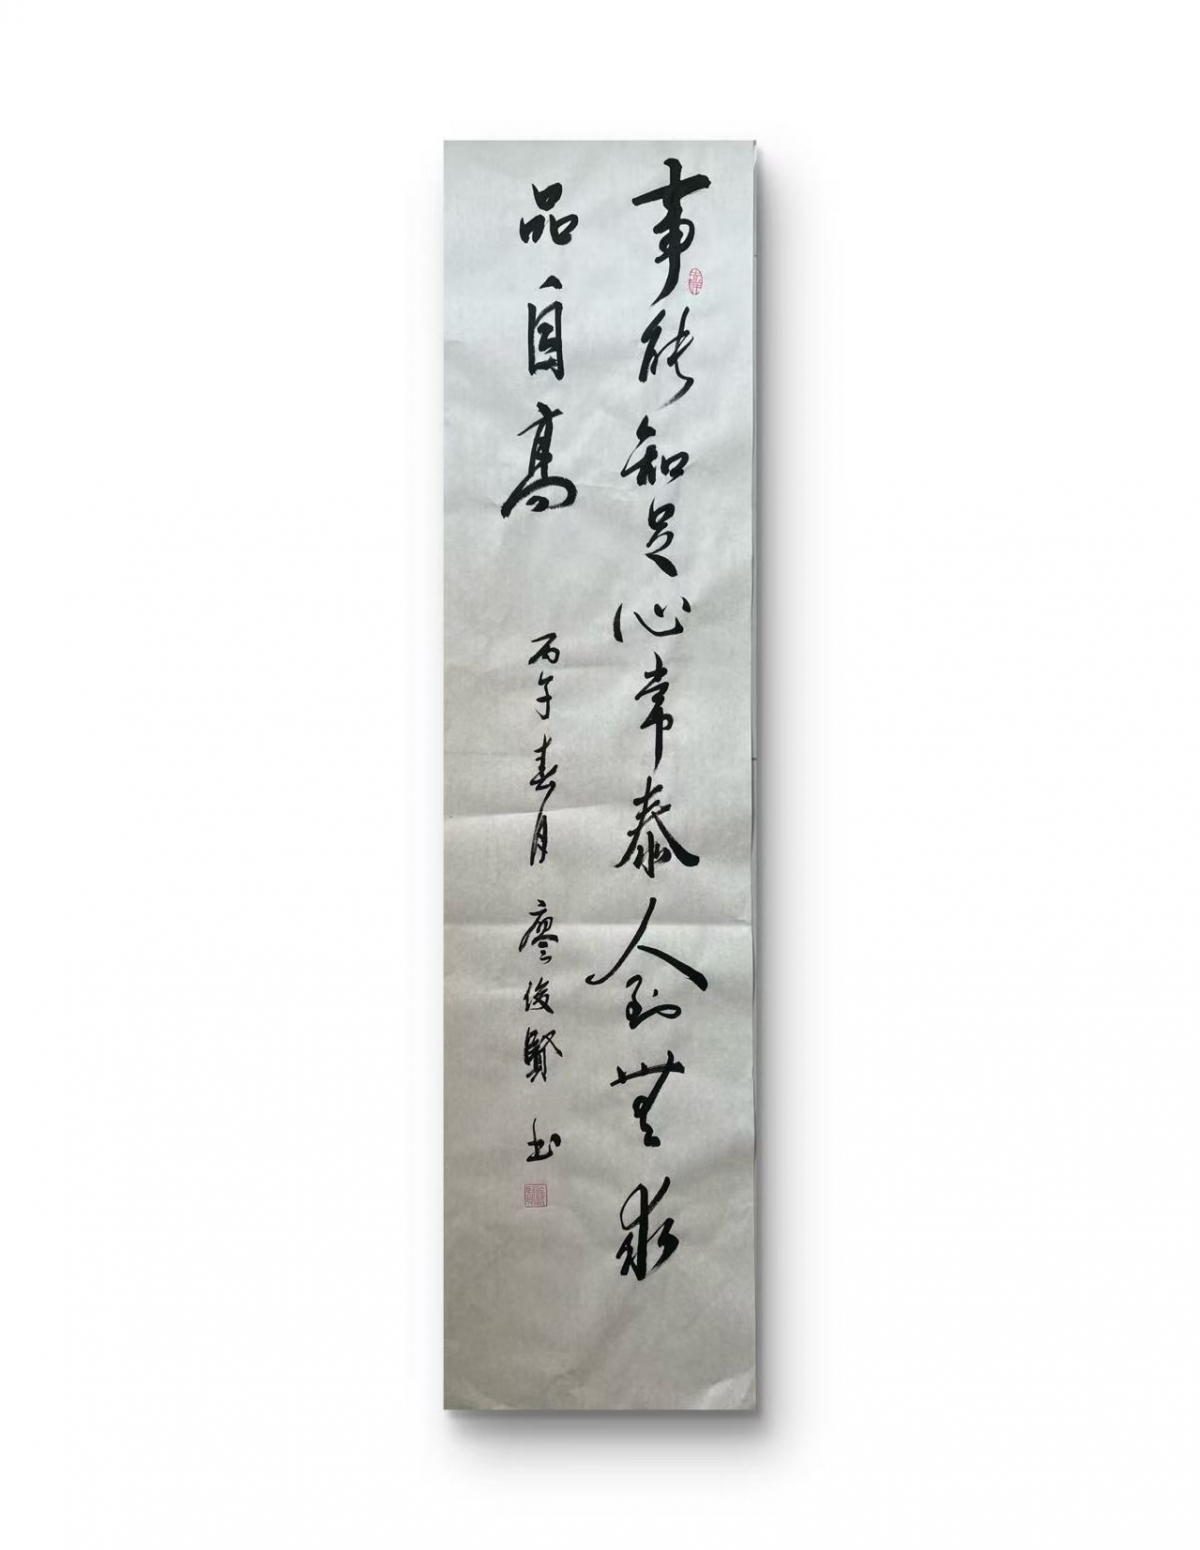 事能知足心常泰人到無求
品自高
丙午春月廖俊賢书